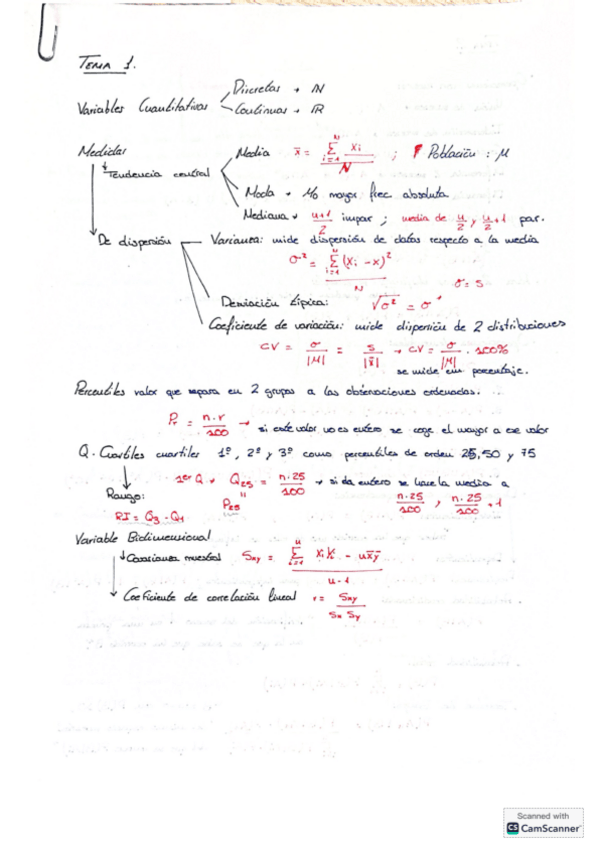 TEMA 1.
Variables Cuantitativas
Discretas → IN
Continuas → IR
Medidas
Tendencia central
Media x̄ = Σ_{i=1}^{N} xi / N ; Población : M
Moda → Mo mayor frec absoluta
Mediana → u+1 / 2 impar ; media de u/2 y u/2 +1 par.
De dispersión
Varianza: mide dispersión de datos respecto a la media
σ² = Σ_{i=1}^{N} (xi - x)² / N
σ = s
Desviación típica: √σ² = σ
Coeficiente de variación: mide dispersión de 2 distribuciones
CV = σ / |M| = s / |x̄| → CV = σ / |M| · 100%
se mide em porcentaje.
Percentiles valor que separa en 2 grupos a las observaciones ordenadas.
Pr = n.r / 100 → si este valor no es entero se coge el mayor a ese valor
Q. Cuartiles cuartiles 1º, 2º y 3º como percentiles de orden 25, 50 y 75
1er Q → Q25 = n.25 / 100 → si da entero se hace la media a
" P25
n.25 / 100 , n.25 / 100 + 1
Rango:
RI = Q3 - Q1
Variable Bidimensional
Covarianza muestral Sxy = Σ_{i=1}^{u} xi Yi - ux̄ȳ / u-1
Coeficiente de correlación lineal r = Sxy / Sx Sy
Scanned with
CS CamScanner